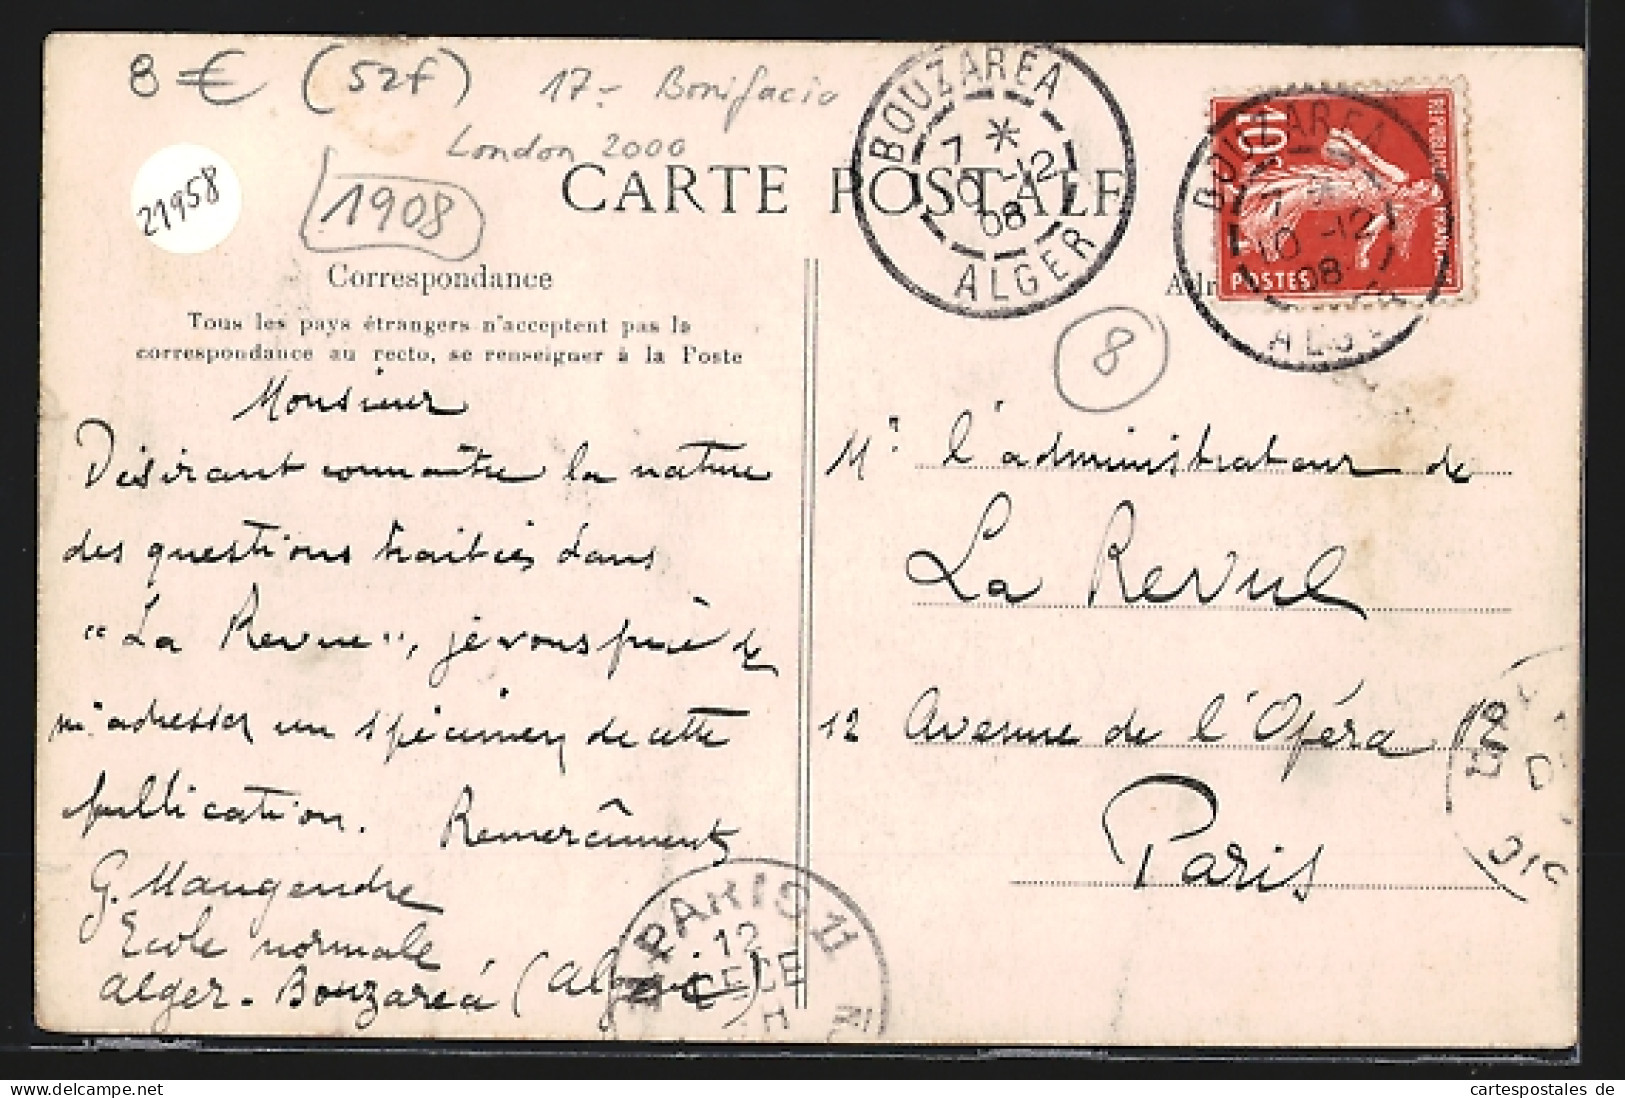 8 € (52f)
17- Bonifacio
London 2000
21958
1908
CARTE POSTALE
Correspondance
Tous les pays étrangers n'acceptent pas la
correspondance au recto, se renseigner à la Poste
BOUZAREA
7 *
10 -12
08
ALGER
10c
REPUBLIQUE FRANÇAISE
POSTES
BOUZAREA
7 *
10 -12
08
ALGER
8
Monsieur
Désirant connaître la nature
des questions traitées dans
"La Revue", je vous prie de
m'adresser un spécimen de cette
publication. Remercîments
G. Maugendre
Ecole normale
Alger-Bouzaréa (Algérie)
Mr l'administrateur de
La Revue
12 Avenue de l'Opéra 12
Paris
PARIS 11
12
DIC
cartespostales de